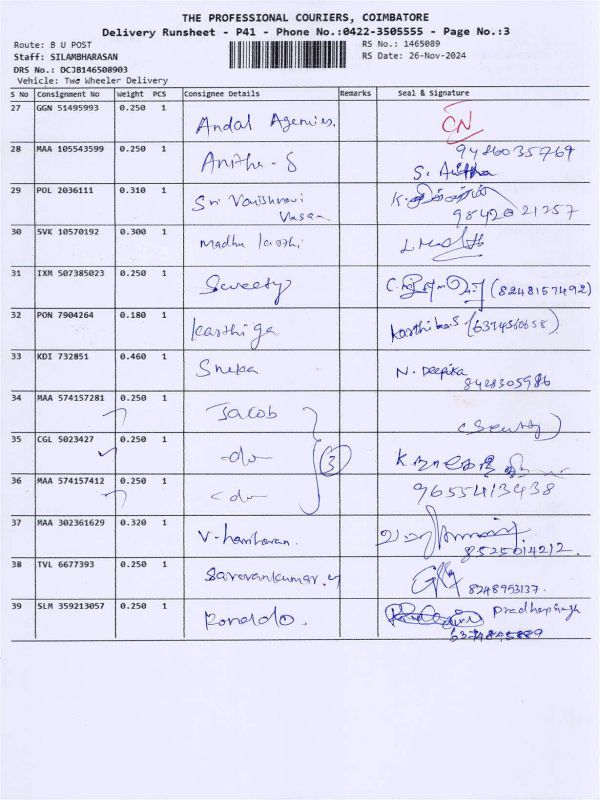 THE PROFESSIONAL COURIERS, COIMBATORE
Delivery Runsheet - P41 - Phone No.:0422-3505555 - Page No.:3
Route: B U POST
RS No.: 1465089
Staff: SILAMBHARASAN
RS Date: 26-Nov-2024
DRS No.: DCJB146508903
Vehicle: Two Wheeler Delivery
S No Consignment No Weight PCS Consignee Details Remarks Seal & Signature
27 GGN 51495993 0.250 1 Andal Agencies. CN
28 MAA 105543599 0.250 1 Anitha-S 9486035769
S. Anitha
29 POL 2036111 0.310 1 Sri Vanishravi K.
Vasan 9842021257
30 SVK 10570192 0.300 1 Madhu
31 IXM 507385023 0.250 1 Sweety (8248157492)
32 PON 7904264 0.180 1 Karthiga (6374560658)
33 KDI 732851 0.460 1 Sneka N. Deepika
8428305986
34 MAA 574157281 0.250 1 Jacob
35 CGL 5023427 0.250 1 -do- 3
36 MAA 574157412 0.250 1 -do- 9655413438
37 MAA 302361629 0.320 1 8525014212.
38 TVL 6677393 0.250 1 Saravankumar. 8248953137.
39 SLM 359213057 0.250 1 Ronaldo. Pradhapsingh